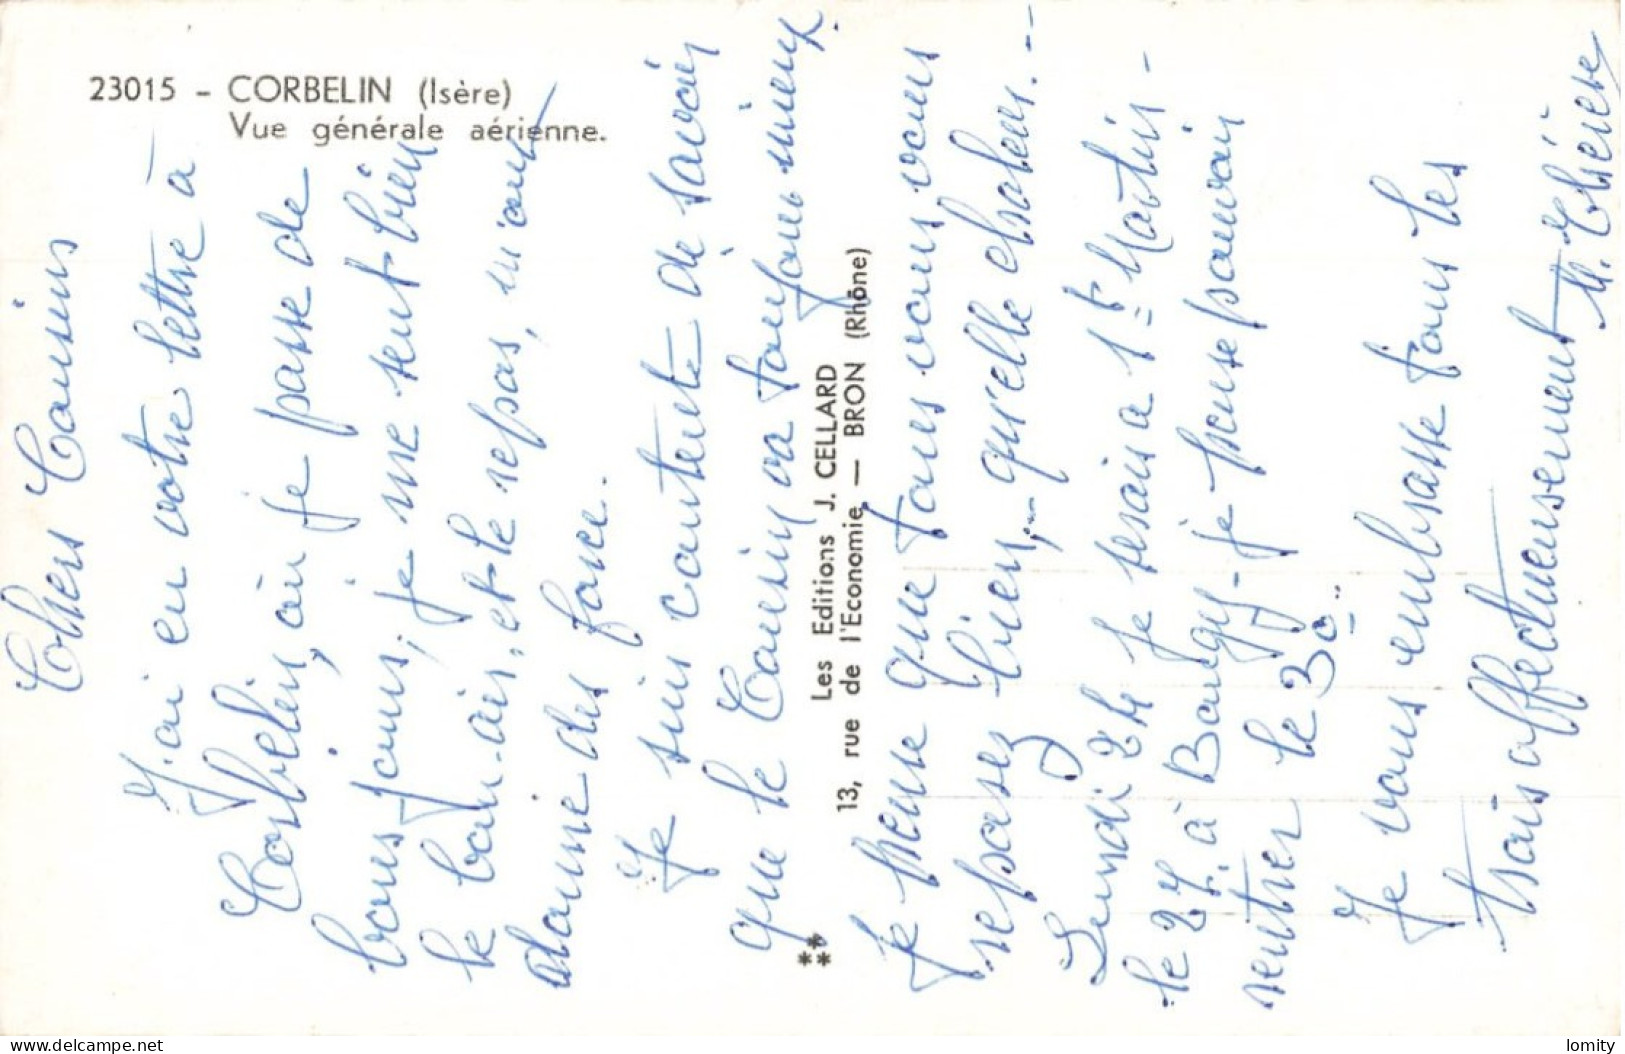 23015 - CORBELIN (Isère)
Vue générale aérienne.
Chers Cousins
J'ai eu votre lettre à
Corbelin, où je passe de
bons jours, je me sent bien
le bon-air, et le repos, m'ont
donné des force.
Je suis contente de savoir
que le Cousin va toujours mieux
Les Editions J. CELLARD
13, rue de l'Economie, — BRON (Rhône)
**
**
Je pense que tous vous vous
reposez bien, qu'elle chaleur. --
Lundi 24 je serais a St Martin -
le 27. à Bougy - je pense pouvoir
rentrer le 30
Je vous embrasse tous les
trois affectueusement
M. Thérèse
delcampe.net
lomity